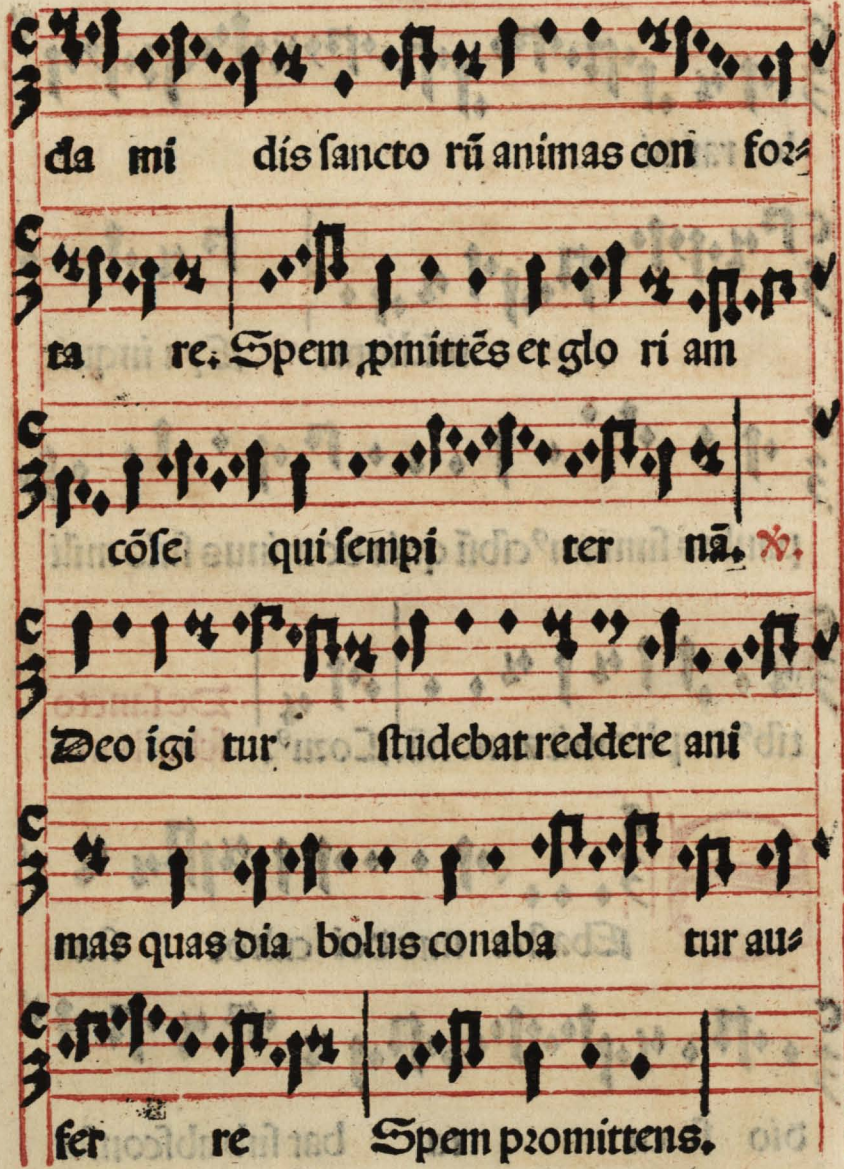 da mi dis sancto rū animas con for⸗
ta re. Spem ꝓmittēs et glo ri am
cōse qui sempi ter nā. ℣.
Deo igi tur studebat reddere ani
mas quas dia bolus conaba tur au⸗
fer re Spem promittens.